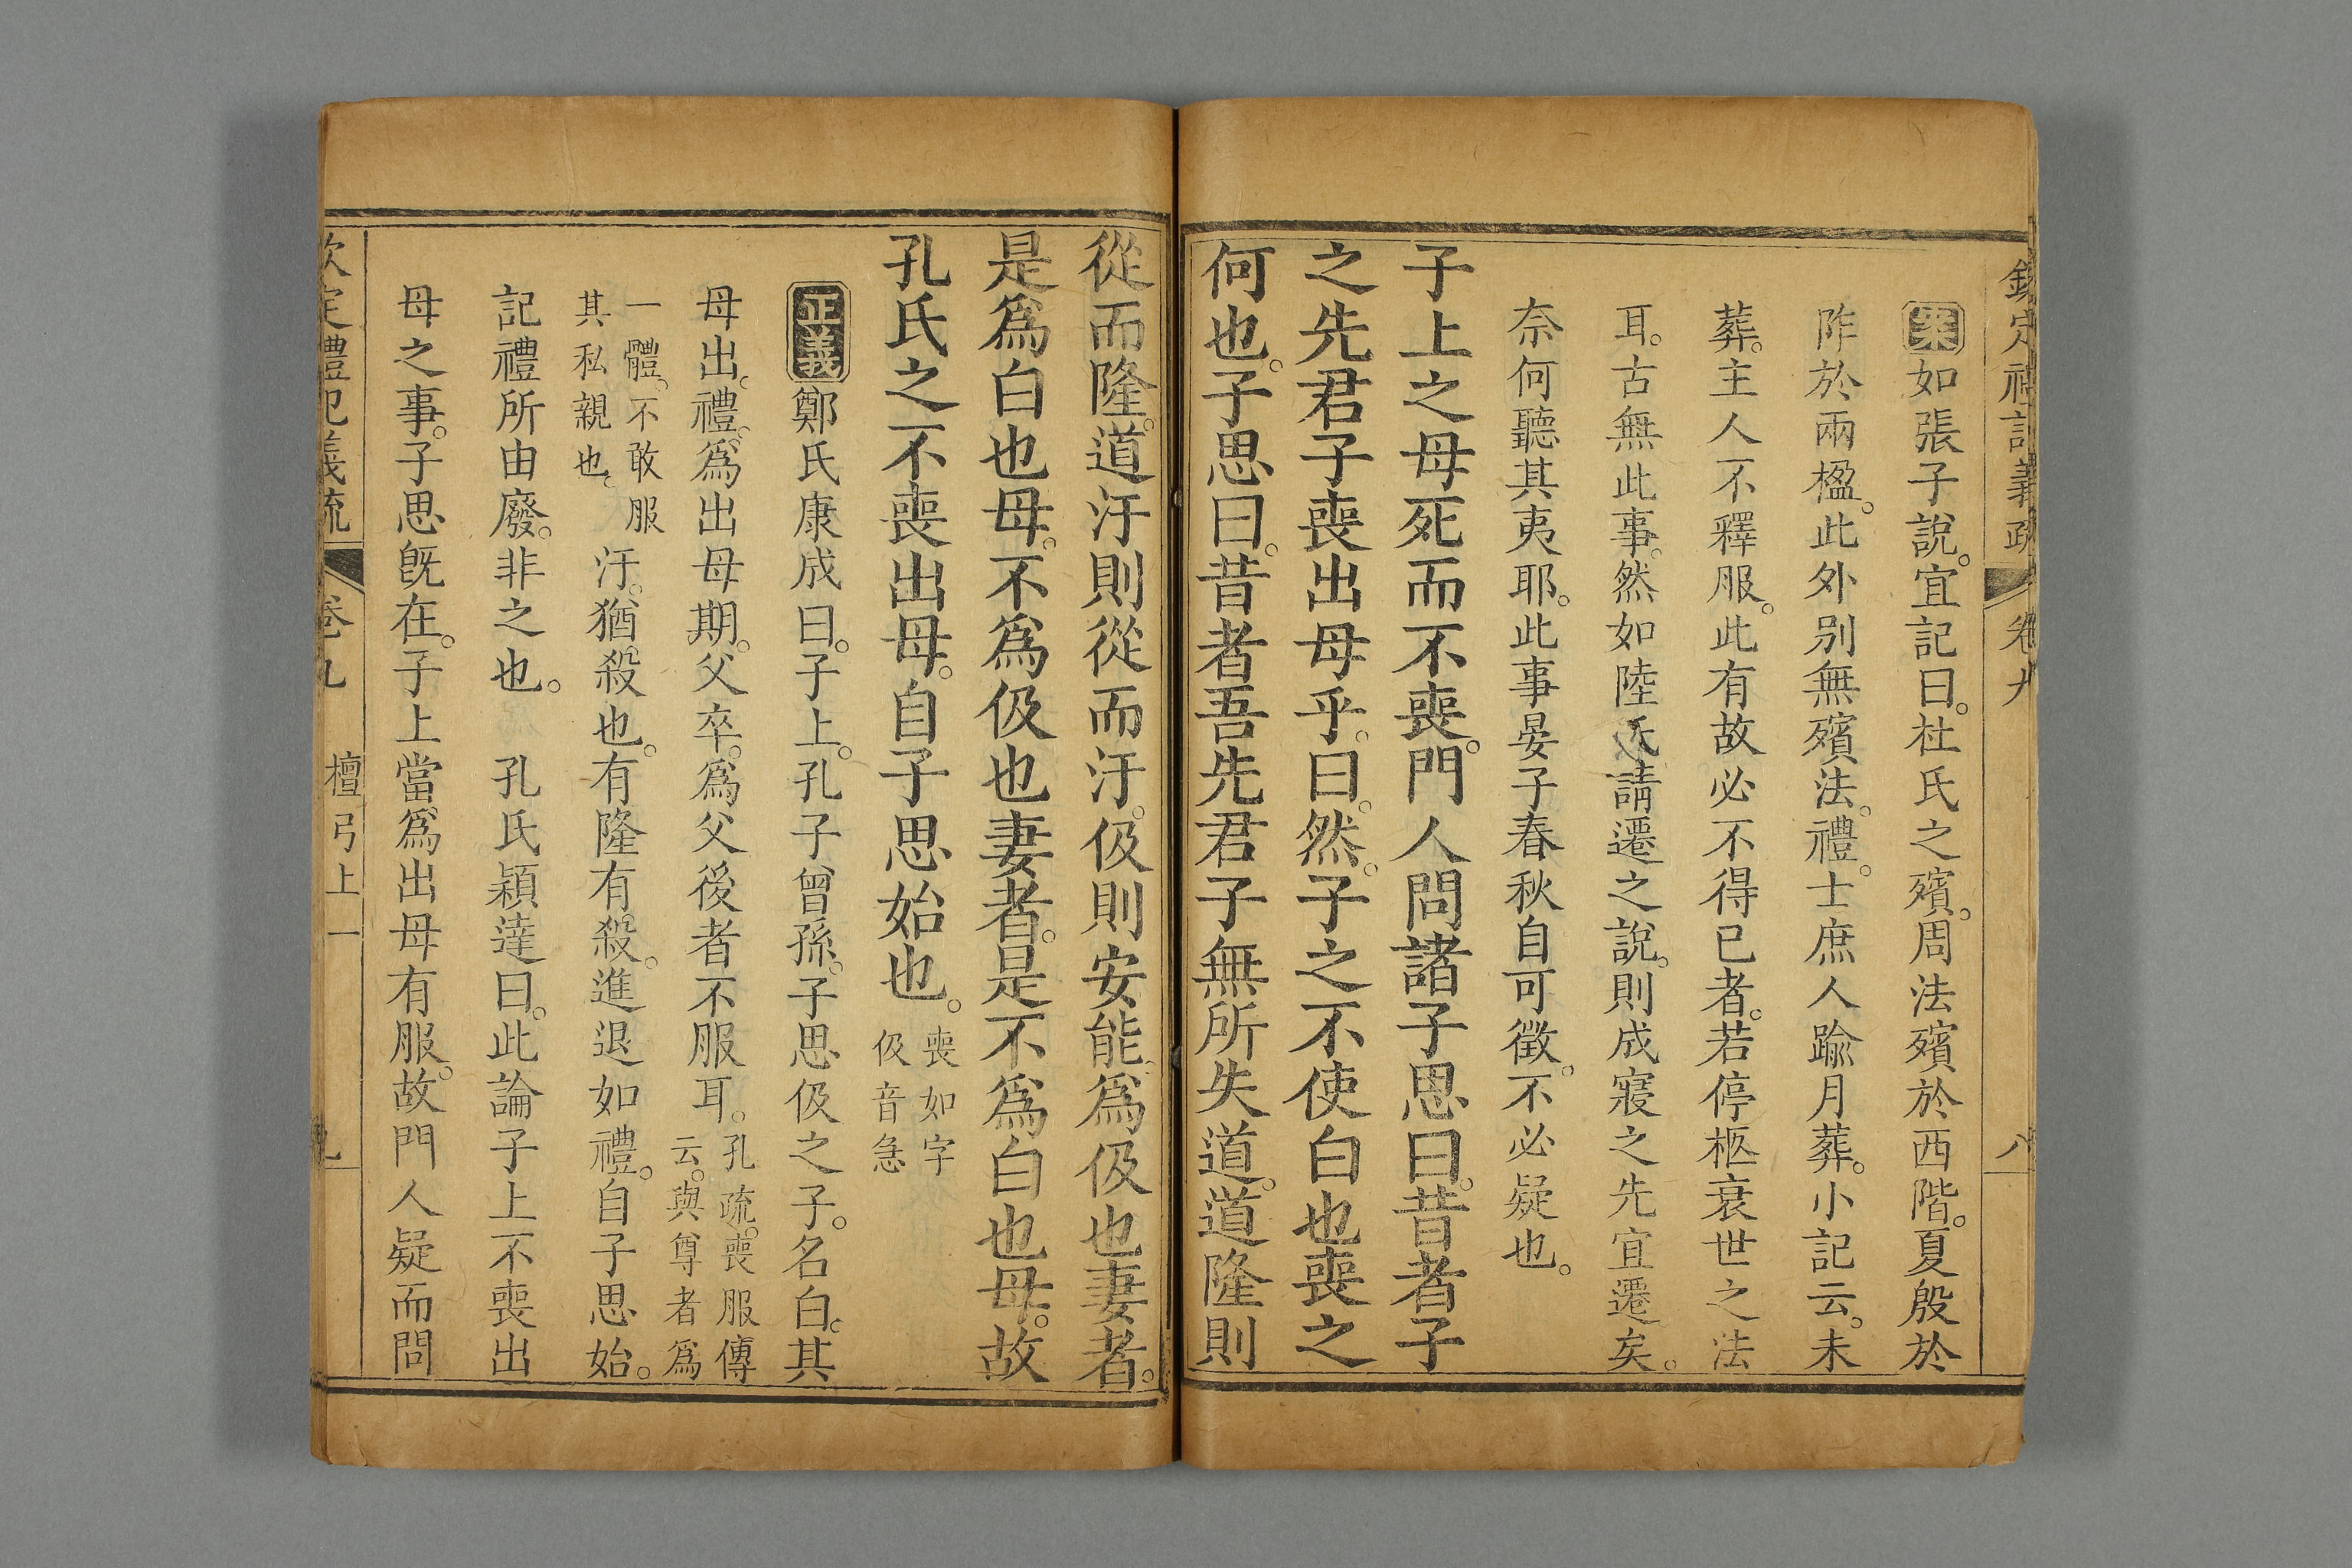 欽定禮記義疏 卷九 八
案如張子說。宜記曰。杜氏之殯。周法殯於西階。夏殷於
阼於兩楹。此外別無殯法。禮。士庶人踰月葬。小記云。未
葬。主人不釋服。此有故必不得已者。若停柩衰世之法
耳。古無此事。然如陸氏請遷之說。則成寢之先宜遷矣。
奈何聽其夷耶。此事晏子春秋自可徵。不必疑也。
子上之母死而不喪。門人問諸子思曰。昔者子
之先君子喪出母乎。曰。然。子之不使白也喪之
何也。子思曰。昔者吾先君子無所失道。道隆則
從而隆。道汙則從而汙。伋則安能爲伋也妻者。
是爲白也母。不爲伋也妻者。是不爲白也母。故
孔氏之不喪出母。自子思始也。喪如字
伋音急
正義鄭氏康成曰。子上。孔子曾孫。子思伋之子。名白。其
母出。禮。爲出母期。父卒。爲父後者不服耳。孔疏。喪服傳
云。與尊者爲
一體。不敢服
其私親也。汙。猶殺也。有隆有殺。進退如禮。自子思始。
記禮所由廢。非之也。 孔氏穎達曰。此論子上不喪出
母之事。子思既在。子上當爲出母有服。故門人疑而問
欽定禮記義疏 卷九 檀弓上一 九